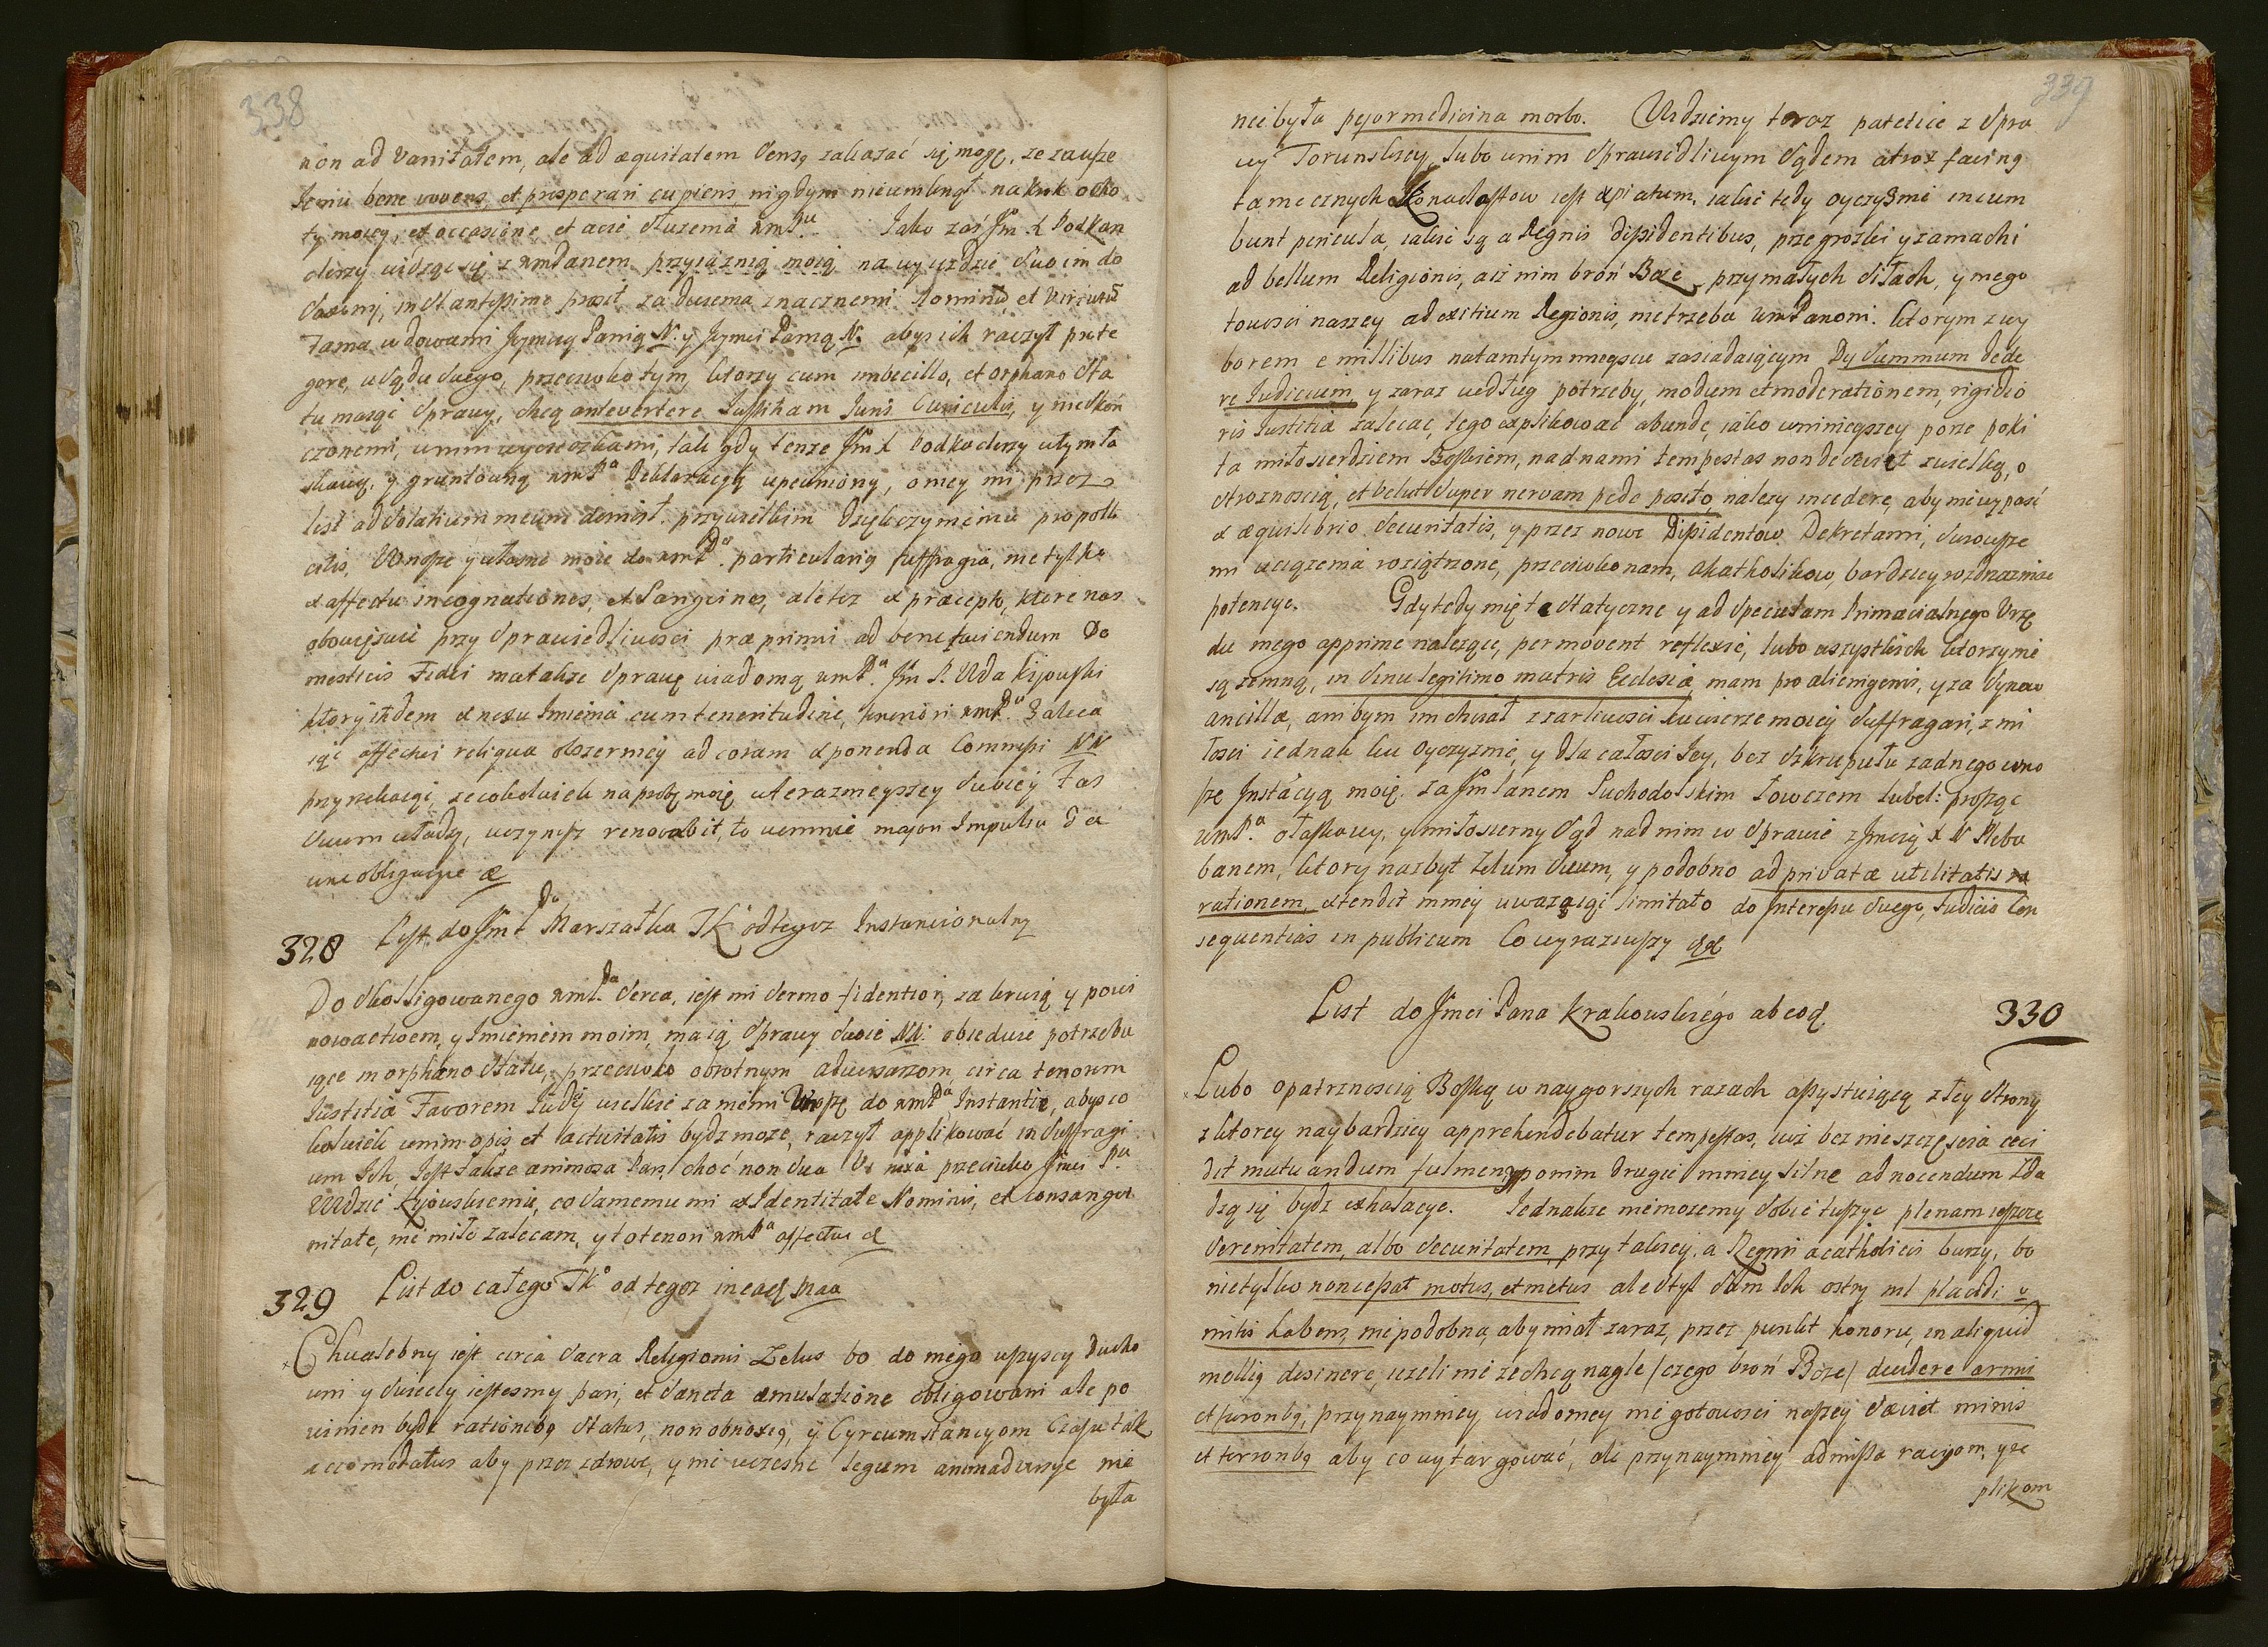 338
non ad Vanitatem, ale ad æquitatem Censę zakazać się mogę, ze zawsze
bene vovens, et prosperari cupiens, nigdym nieumknął na krok ocho
ty moiey, et occasione, et acie służenia wmPu. Jako zaś Jm X Podkan
clerzy widząc się z wmPanem przyiaznią moią na wyiezdzie swoim do
instantissime prosił za dwiema znacznemi Nominis et
Fama wdowami Jeymcią Panią N. y Jeymci Panią N. abyś ich raczył prote
gere, w Sądu swego, przeciwko tym, ktorzy cum imbecillo, et orphano Sta
tu maiąc Sprawy, chcą antevertere Iustitiam Iuris Cuniculis, y nieskoń
czonemi, umm wycieczkami, tak gdy tenze Jm X Podkaclerzy
skawą, y gruntowną wmPa Deklaracyą upewniony, o mey mi przez
list ad Solatium meum doniosł. przy wielkim dziękczynieniu pro
citis, Wnoszę y własne moie do wmPa. particularia suffragia, nie tylko
ex affectu incognationes, et Sanguines, ale tez ex præceptis, ktore nas
obowięzuie przy Sprawiedliwości præprimis ad benefaciendum Do
mesticis Fidei ma takze Sprawę wiadomą wmPa. Jm P. Wda Kijowski
ktory itidem ex nexu Imienia cum teneritudine, teneriori wmPa Zaleca
iąc affectui reliqua obszerniey ad coram exponenda Commisi NN
przyrzekaiąc, ze cokolwiek na prozbę moię w terazneyszey Swoiey Łas
Suum władzy, uczynisz renovabit, to wemnie majori Impulsu da
wne obligacye &
328 List do JmPa Marszałka TKo od tegoz Instancionalny
Do Skolligowanego wmPa. Serca, iest mi Sermo fidentior, za krwią y powi
nowactwem, y Imieniem moim, maią Sprawy Swoie NN. obiedwie potrzebu
iące in orphano Statu, przeciwko obrotnym adwersarzom circa tenorem
Iustitiæ Favorem Judy wielkie za niemi Wnoszę do wmPa Instantie, abyś co
kolwiek umm opis, et activitatis bydz moze, raczył applikować in Suffragi
um Ich, Jest takze animosa Pars, choć non sua Vi nixa przeciwko Jmci Pu
Wdzie Kijowskiemu, co Samemu mi ex Identitate Nominis, et consangui
nitate, nie miło zalecam, y to tenori wmPa affectus &
329 List do całego TKo od tegoz in eadq maa
Chwalebny iest circa Sacra Religionis Zelus bo do niego wszyscy Ducho
wni y Swieccy iestesmy pari, et Sancta æmulatione obligowani ale po
winien bydz rationibq Status, non obnoxiq, y Cyrcumstancyom Czasu tak
accomodatus aby przez zdrowe, y nie wczesne legum animadwersye nie
była
339
nie była pejor medicina morbo. Widziemy teraz patetice z Spra
wy Torunskiey, lubo umm Sprawiedliwym Sądem atrox facing
tamecznych iest expiatum, iakie tedy oyczyznie incum
bunt pericula, iakie są a Regnis Dissidentibus, przegrozki y zamachi
ad bellum Religionis, a iż nim broń Boże, przy małych Siłach, y niego
towosci naszey ad exitium Regionis, nie trzeba wmPanom. ktorym z wy
borem e millibus na tamtym mieyscu zasiadaiącym Dy Summum dede
re Iudicium, y zaraz według potrzeby, modum et moderationem, rigidio
ris Iustitiæ zalecać, tego explikować abunde, iako umnieyszey porze poki
ta miłosierdziem Boskiem, nad nami tempestas non deseviet z wielką, o
stroznoscią, et velut Super nervam pede posito, nalezy incedere, aby nie wypaść
ex æquilibrio Securitatis, y przez nowe Dissidentow Dekretami, Surowsze
mi uciązenia roziątrzone, przeciwko nam, akatholikow bardziey rozdraznic
potencye. Gdy tedy mię te Statyczne y ad Speculam Primacialnego Urzę
du mego apprime nalezące, permovent reflexie, lubo wszystkich ktorzy nie
są zemną, in Sinu legitimo matris Ecclesiæ, mam pro alienigenis, y za Synow
ancillæ, anibym im chciał z zarliwosci ku wierze moiey Suffragari, z mi
łosci iednak ku Oyczyznie, y dla całosci Jey, bez Szkrupułu zadnego wno
szę Instacyą moię. za Jm Panem Suchodolskim Łowczem lubel: prosząc
wmPa. o łaskawy, y miłosierny Sąd nad nim w Sprawie z Jmcią X N Pleba
banem, ktory nazbyt Zelum Suum, y podobno ad privatæ utilitatis ra
rationem, extendit mniey uwazaiąc Imitato do Interessu Swego, Iudicio Con
sequentias in publicum Co wyraziwszy &
List do Jmci Pana Krakowskiégo ab eodq 330
Lubo opatrznoscią Boską w naygorszych razach assystuiącą z tey Strony
z ktorey naybardziey apprehendebatur tempestas, iuż bez nieszczęscia ceci
dit mutuandum fulmen, ponim drugie mniey silne ad nocendum Zda
dzą się bydz exhalacye. Jednakze niemozemy Sobie tuszyc plenam ieszcze
Serenitatem, albo Securitatem, przy takiey. a Regnis acatholicis burzy, bo
nie tylko non cessat motus, et metus ale Styl Sam Ich ostry nil placidi y
mitis habens, niepodobna, aby miał zaraz, przez punkt honoru, in aliquid
mollig desinere, iezeli nie zechcą nagle /czego broń Boże/ deudere armis
et furoribq, przynaymniey wiadomey nie gotowosci naszey Sæviet minis
et terroribq aby co wytargować, ale przynaymniey admissa racyom, y re
plikom